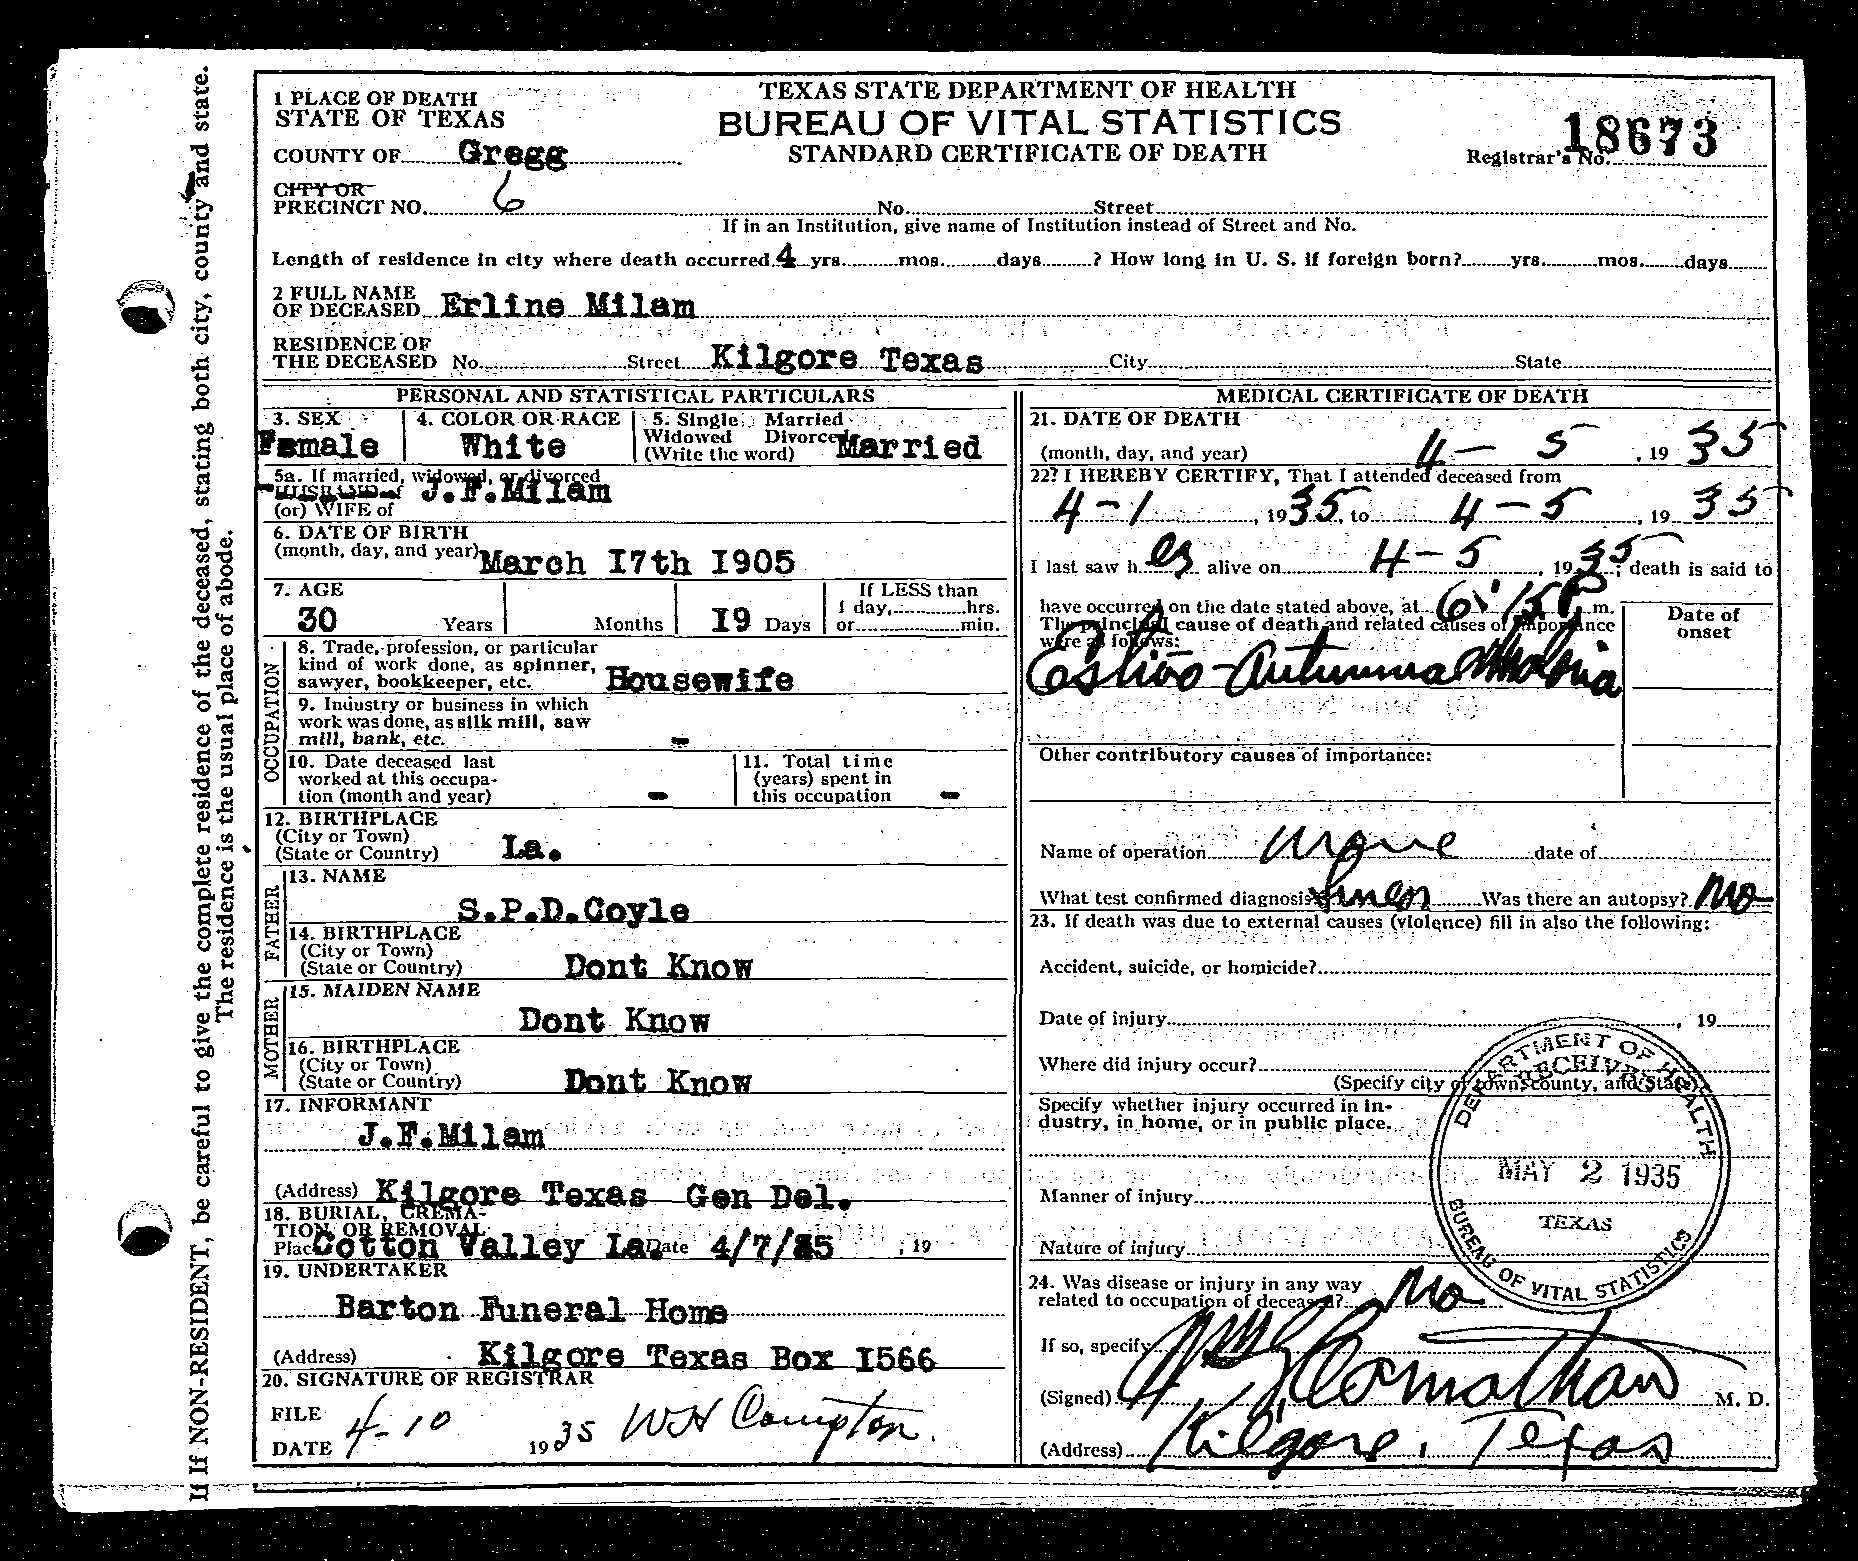 TEXAS STATE DEPARTMENT OF HEALTH
BUREAU OF VITAL STATISTICS
STANDARD CERTIFICATE OF DEATH
Registrar's No. 18673
1 PLACE OF DEATH
STATE OF TEXAS
COUNTY OF Gregg
CITY OR
PRECINCT NO. 6 No. Street
If in an Institution, give name of Institution instead of Street and No.
Length of residence in city where death occurred 4 yrs. mos. days ? How long in U. S. if foreign born? yrs. mos. days
2 FULL NAME
OF DECEASED Erline Milam
RESIDENCE OF
THE DECEASED No. Street Kilgore Texas City State
PERSONAL AND STATISTICAL PARTICULARS
3. SEX 4. COLOR OR RACE 5. Single Married
Widowed Divorced
Female White (Write the word) Married
5a. If married, widowed, or divorced
HUSBAND of J.F.Milam
(or) WIFE of
6. DATE OF BIRTH
(month, day, and year) March I7th I905
7. AGE If LESS than
30 Years Months I9 Days 1 day, hrs.
or min.
OCCUPATION
8. Trade, profession, or particular
kind of work done, as spinner,
sawyer, bookkeeper, etc. Housewife
9. Industry or business in which
work was done, as silk mill, saw
mill, bank, etc. -
10. Date deceased last
worked at this occupa-
tion (month and year) -
11. Total time
(years) spent in
this occupation -
12. BIRTHPLACE
(City or Town)
(State or Country) La.
FATHER
13. NAME
S.P.D.Coyle
14. BIRTHPLACE
(City or Town)
(State or Country) Dont Know
MOTHER
15. MAIDEN NAME
Dont Know
16. BIRTHPLACE
(City or Town)
(State or Country) Dont Know
17. INFORMANT
J.F.Milam
(Address) Kilgore Texas Gen Del.
18. BURIAL, CREMA-
TION, OR REMOVAL
Place Cotton Valley La. Date 4/7/35 , 19
19. UNDERTAKER
Barton Funeral Home
(Address) Kilgore Texas Box I566
20. SIGNATURE OF REGISTRAR
FILE
DATE 4-10 1935 WH Compton.
MEDICAL CERTIFICATE OF DEATH
21. DATE OF DEATH
(month, day, and year) 4-5 , 19 35
22? I HEREBY CERTIFY, That I attended deceased from
4-1 , 1935, to 4-5 , 19 35
I last saw h er alive on 4-5 , 1935; death is said to
have occurred on the date stated above, at 6:15 P m.
The principal cause of death and related causes of importance
were as follows:
Date of
onset
Estivo-Autumnal Malaria
Other contributory causes of importance:
Name of operation None date of
What test confirmed diagnosis? Smear Was there an autopsy? No
23. If death was due to external causes (violence) fill in also the following:
Accident, suicide, or homicide?
Date of injury , 19
Where did injury occur?
(Specify city or town, county, and State)
Specify whether injury occurred in in-
dustry, in home, or in public place.
Manner of injury
Nature of injury
24. Was disease or injury in any way
related to occupation of deceased? No
If so, specify
(Signed) M. D.
(Address) Kilgore, Texas
DEPARTMENT OF HEALTH
RECEIVED
MAY 2 1935
TEXAS
BUREAU OF VITAL STATISTICS
If NON-RESIDENT, be careful to give the complete residence of the deceased, stating both city, county and state.
The residence is the usual place of abode.